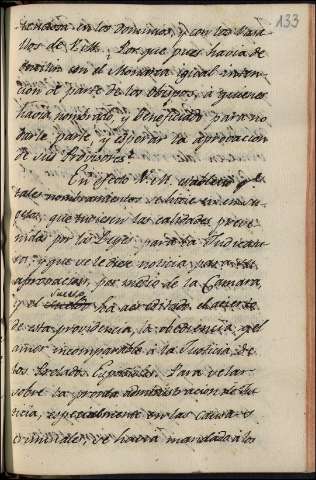 133
tencosa en los Dominios, y con los Vasa-
llos de V.M. Por que pues havia de
existir con el Monarca igual inten-
cion de parte de los obispos, à quienes
havia nombrado, y beneficiado para no
darle parte, y esperar la aprovacion
de sus Provisores?
En efecto V.M. establecio q.e
tales nombramientos se
que tuviesen las calidades preve-
nidas por las Leyes para la Judicatu-
ra; y que se le diese noticia para su
aprovacion, por medio de la Camara,
suceso
y el ha acreditado el acierto
de esta providencia, la obediencia, y el
amor incomparable à la Justicia, de
los Prelados Españoles. Para velar
sobre la pronta administracion de Jus-
ticia, especialmente en las Causas
criminales, se havia mandado à los